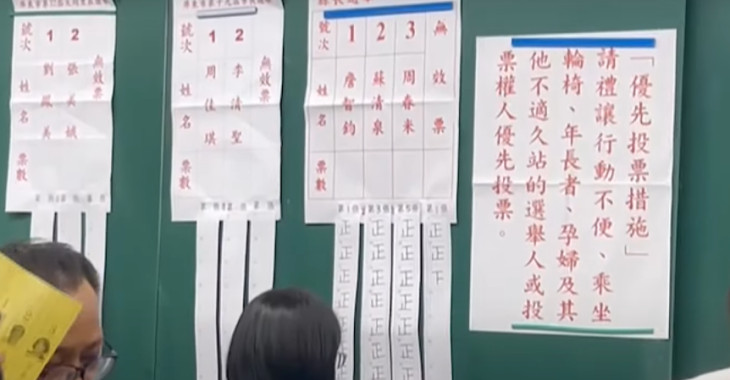 號次 1 2 無效票
姓名
張美
票數
號次 1 2 無效票
姓名 周佳琪 李清聖
票數
號次 1 2 3 無效票
姓名 詹智鈞 蘇清泉 周春米
票數
正 正 正 正
正 正 正 正
正 正 正 下
正 正 正
正 正 正
正 正
正 正
「優先投票措施」
請禮讓行動不便、乘坐
輪椅、年長者、孕婦及其
他不適久站的選舉人或投
票權人優先投票。